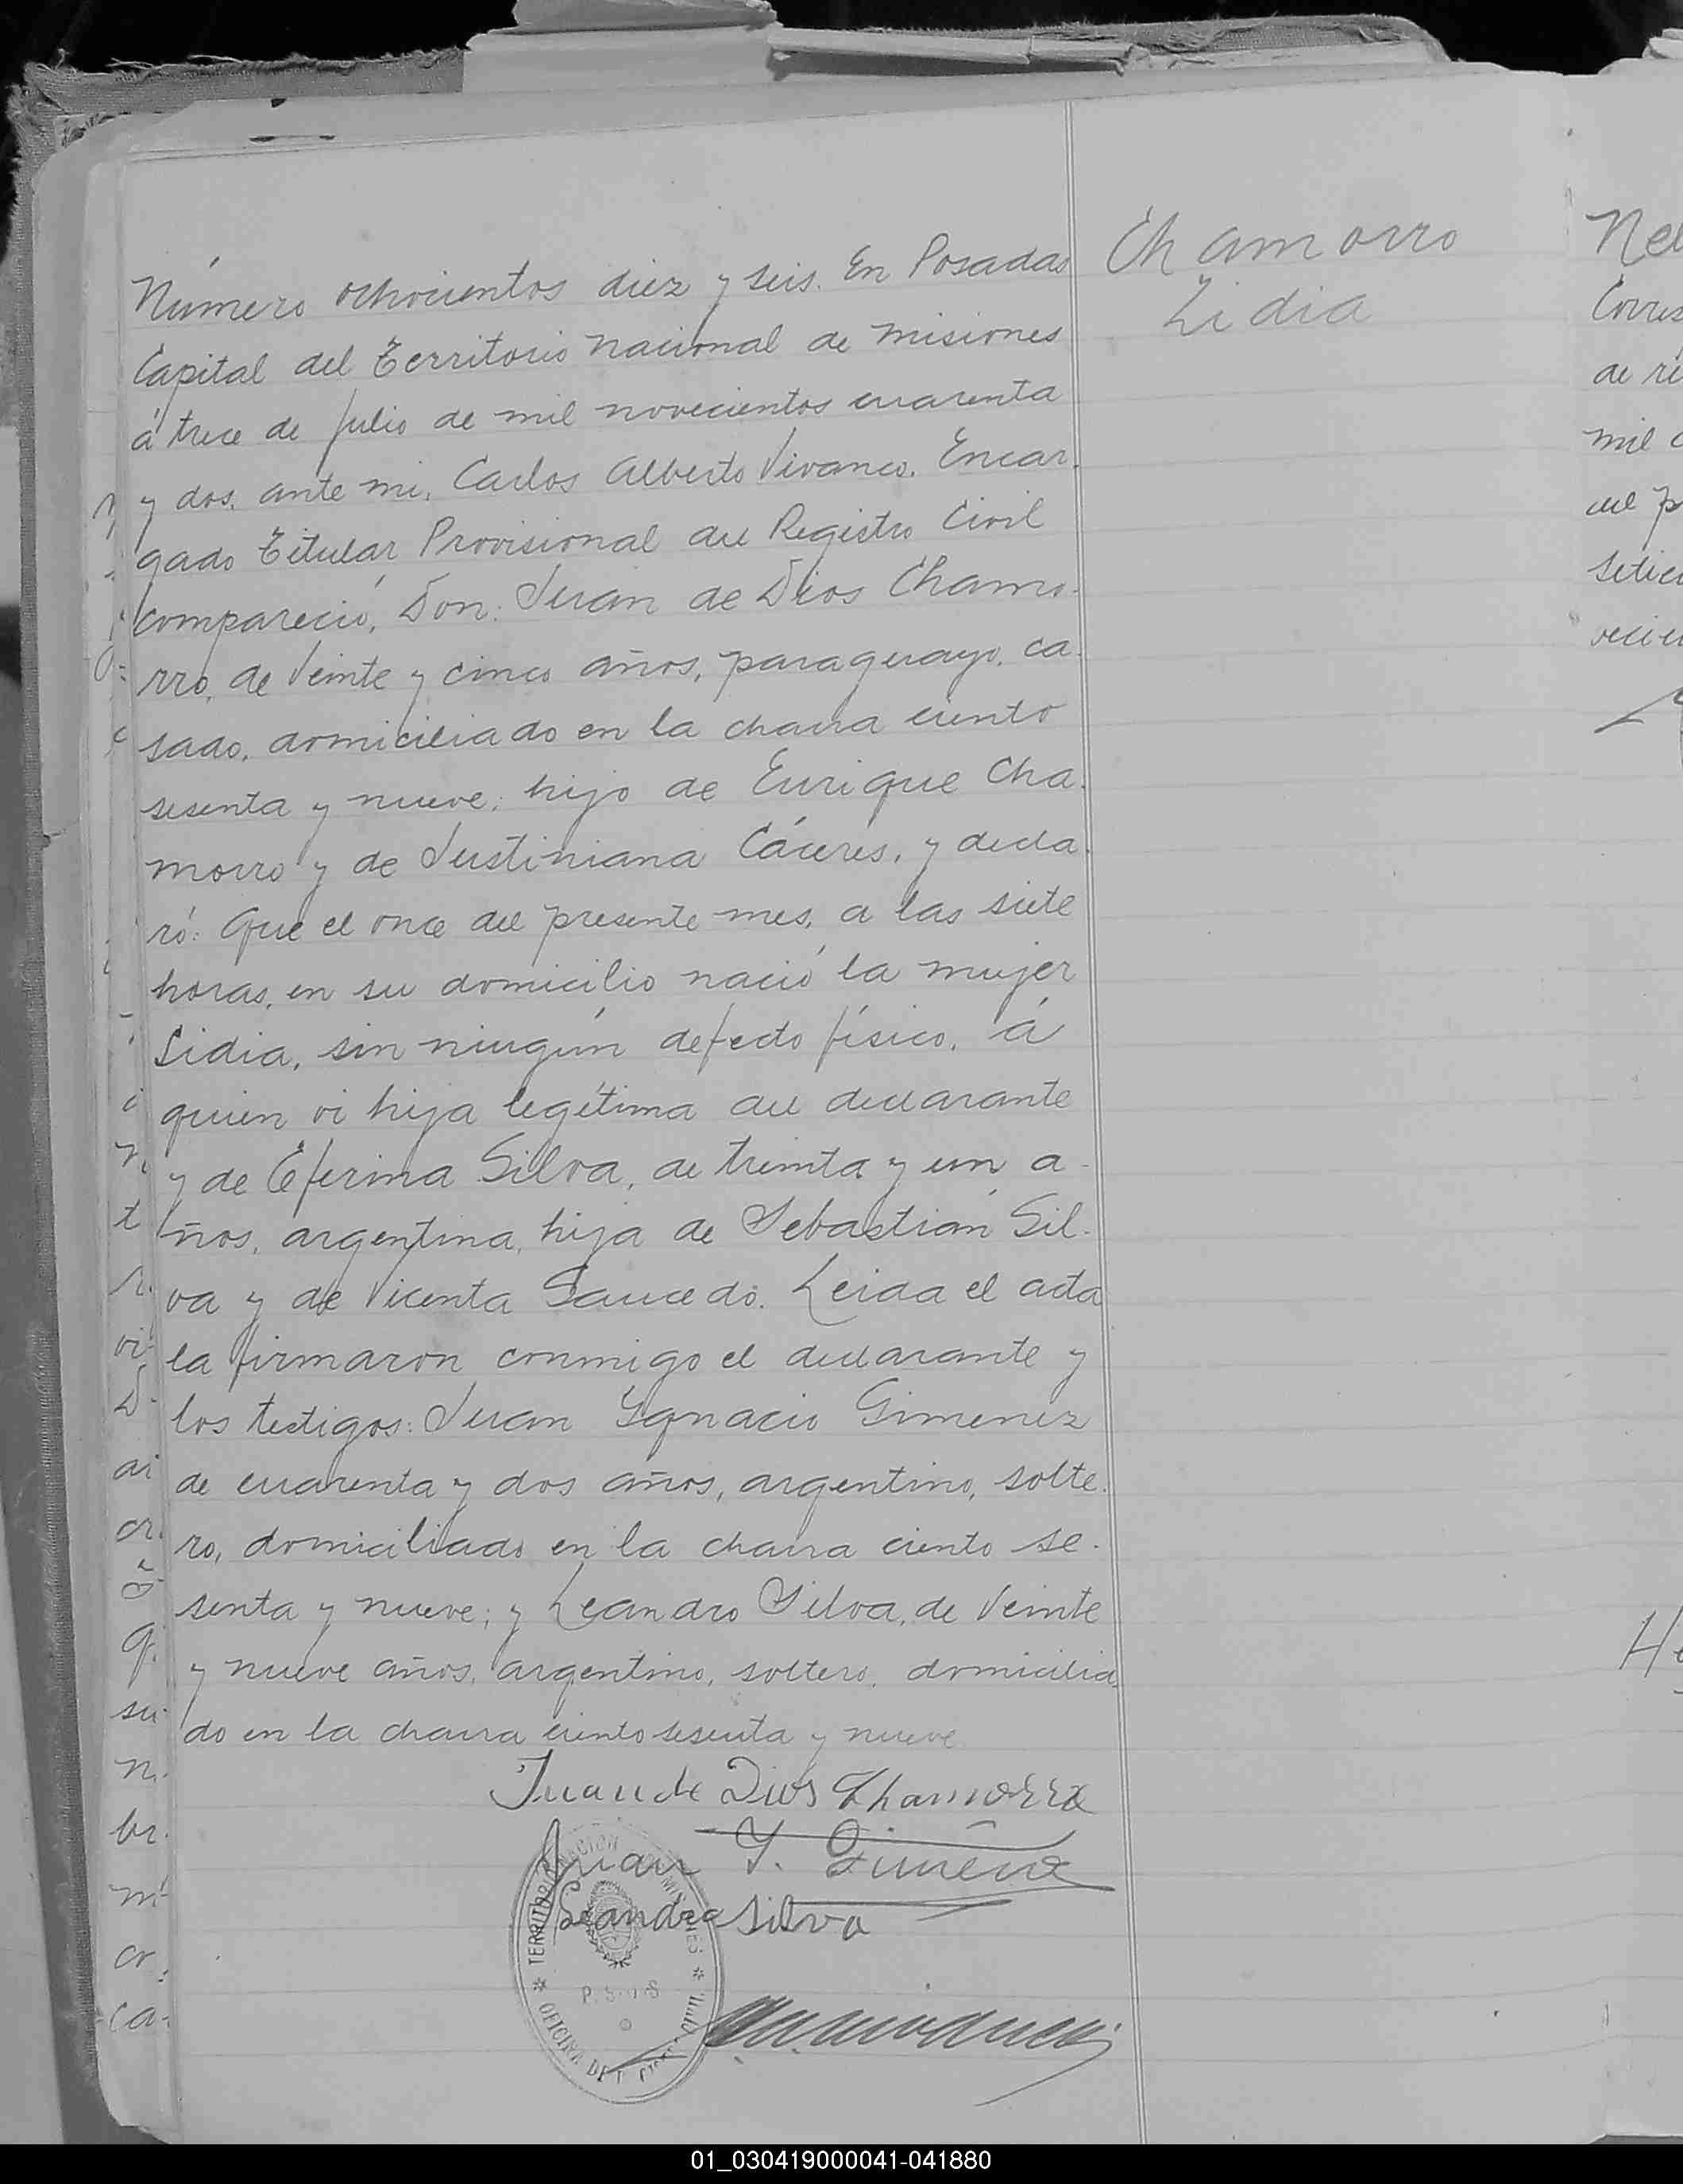 Chamorro
Lidia
Número ochocientos diez y seis. En Posadas
Capital del Territorio Nacional de Misiones
á trece de Julio de mil novecientos cuarenta
y dos, ante mi, Carlos Alberto Vivanco, Encar-
gado Titular Provisional del Registro Civil
compareció, Don: Juan de Dios Chamo-
rro, de Veinte y cinco años, paraguayo, ca-
sado, domiciliado en la chacra ciento
sesenta y nueve; hijo de Enrique Cha-
morro y de Justiniana Cáceres, y decla-
ró: Que el once del presente mes, a las siete
horas, en su domicilio nació la mujer
Lidia, sin ningún defecto físico, á
quien vi hija legítima del declarante
y de Eferina Silva, de treinta y un a-
ños, argentina, hija de Sebastián Sil-
va y de Vicenta Saucedo. Leida el acta
la firmaron conmigo el declarante y
los testigos: Juan Ygnacio Gimenez
de cuarenta y dos años, argentino, solte-
ro, domiciliado en la chacra ciento se-
senta y nueve; y Leandro Silva, de Veinte
y nueve años, argentino, soltero, domicilia-
do en la chacra ciento sesenta y nueve
Juan de Dios Chamorro
Juan Y. Gimenez
Leandro Silva
TERRITORIO NACIONAL MISIONES
OFICINA DEL CIVIL
Nel
Corres
de re
mil
del p
setie
vecie
He
01_030419000041-041880